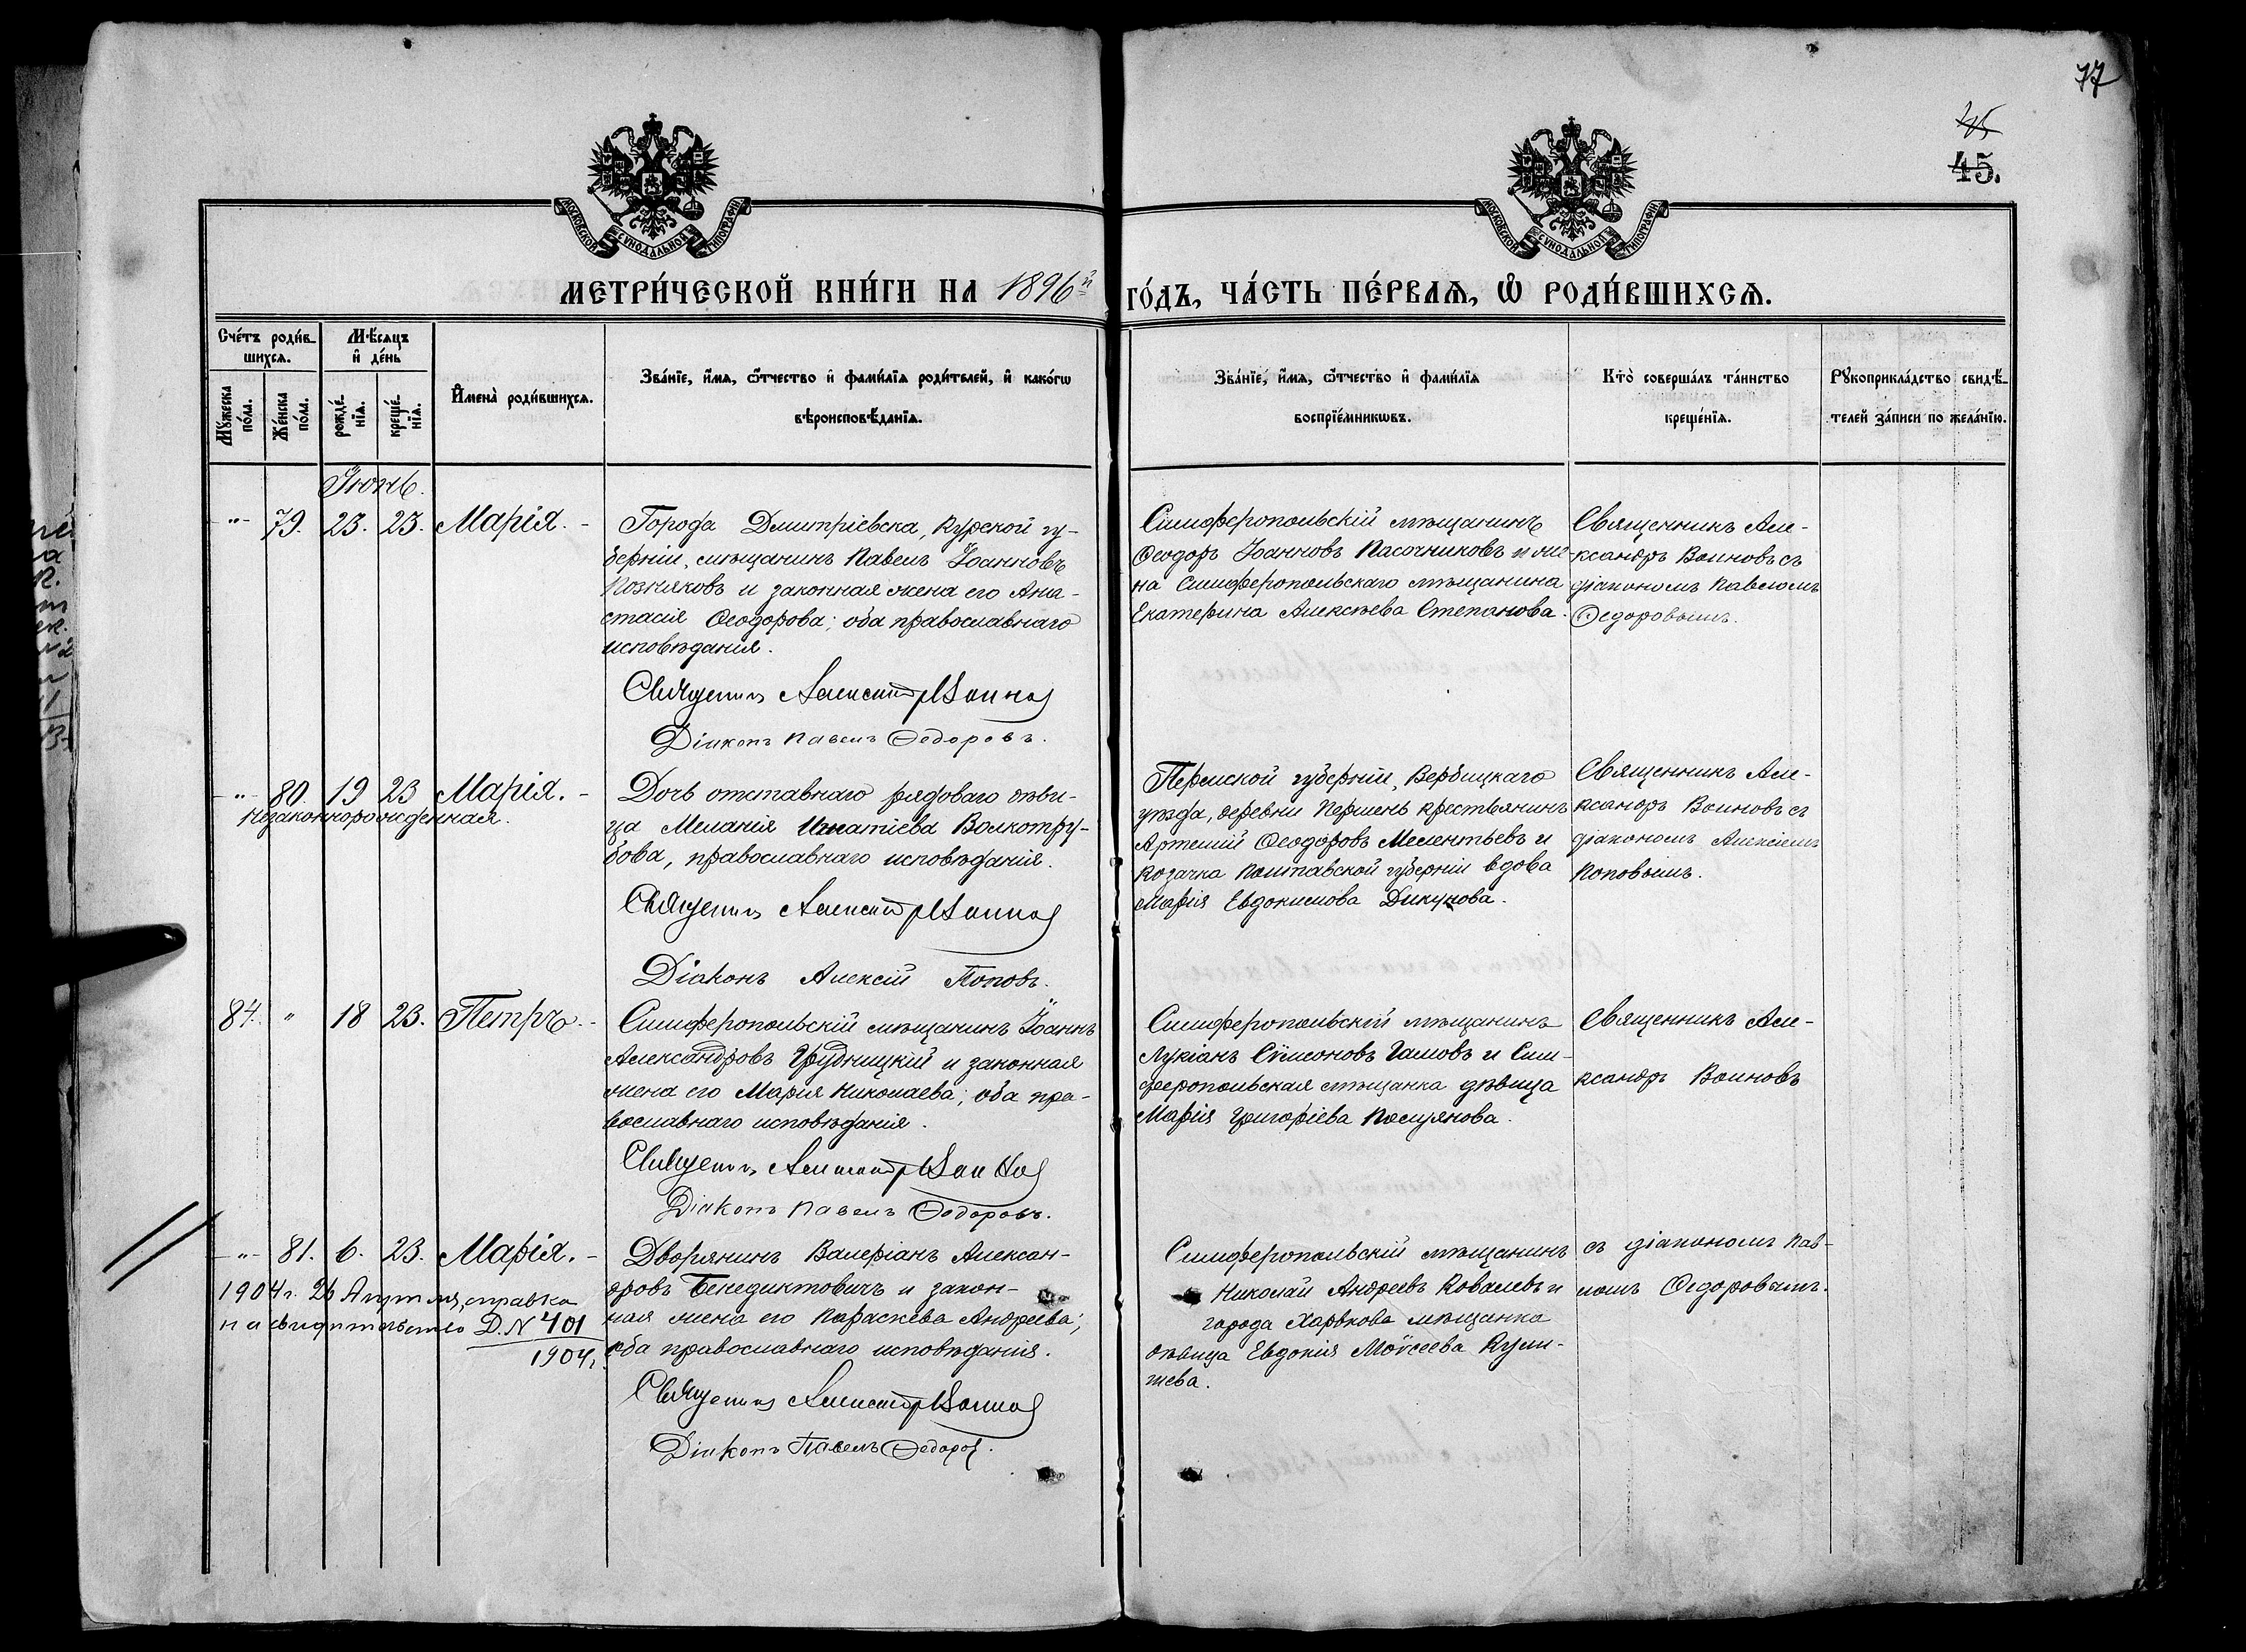 77
45
45.
МОСКОВСКОЙ СУНОДАЛЬНОЙ ТИПОГРАФІИ
МОСКОВСКОЙ СУНОДАЛЬНОЙ ТИПОГРАФІИ
МЕТРИ́ЧЕСКОЙ КНИ́ГИ НА 1896й
ГО́ДЪ, ЧА́СТЬ ПЕ́РВАѦ, Ѡ҆ РОДИ́ВШИХСѦ.
Сче́тъ роди́в-
шихсѧ.
Мѣ́сѧцъ
и҆ де́нь
Мꙋ́жеска
по́ла.
Же́нска
по́ла.
рожде́-
нїѧ.
креще́-
нїѧ.
И҆мена̀ роди́вшихсѧ.
Зва́нїе, и҆́мѧ, ѻ҆́тчество и҆ фами́лїѧ роди́телей, и҆ како́гѡ
вѣроисповѣ́данїѧ.
Зва́нїе, и҆́мѧ, ѻ҆́тчество и҆ фами́лїѧ
воспрїе́мникѡвъ.
Кто̀ соверша́лъ та́инство
креще́нїѧ.
Рꙋкоприкла́дство свидѣ́-
телей за́писи по жела́нїю.
Іюнь.
-"- 79. 23. 23. Марія. -
Города Дмитріевска, Курской гу-
берніи, мѣщанинъ Павелъ Іоанновъ
Позняковъ и законная жена его Ана-
стасія Ѳеодорова; оба православнаго
исповѣданія.
Священникъ Александръ Воиновъ
Діаконъ Павелъ Ѳедоровъ.
Симферопольскій мѣщанинъ
Ѳеодоръ Іоанновъ Пасочниковъ и же-
на Симферопольскаго мѣщанина
Екатерина Алексѣева Степанова.
Священникъ Але-
ксандръ Воиновъ съ
діакономъ Павломъ
Ѳедоровымъ.
-"- 80. 19 23 Марія. -
Незаконнорожденная.
Дочь отставнаго рядоваго дѣви-
ца Меланія Игнатіева Волкотру-
бова, православнаго исповѣданія.
Священникъ Александръ Воиновъ
Діаконъ Алексій Поповъ.
Пермской губерніи, Вербицкаго
уѣзда, деревни Першень крестьянинъ
Артемій Ѳеодоровъ Мелентьевъ и
козачка Полтавской губерніи вдова
Марія Евдокимова Дикунова.
Священникъ Але-
ксандръ Воиновъ съ
діакономъ Алексіемъ
Поповымъ.
84. " 18 23. Петръ. -
Симферопольскій мѣщанинъ Іоаннъ
Александровъ Грудницкій и законная
жена его Марія Николаева; оба пра-
вославнаго исповѣданія.
Священникъ Александръ Воиновъ
Діаконъ Павелъ Ѳедоровъ.
Симферопольскій мѣщанинъ
Лукіанъ Сѵмеоновъ Гамовъ и Сим-
феропольская мѣщанка дѣвица
Марія Григоріева
Священникъ Але-
ксандръ Воиновъ
-"- 81. 6. 23. Марія. -
1904 г. 26 справка
на свидѣтельство Д. N 401
1904 г.
Дворянинъ Валеріанъ Алексан-
дровъ Бенедиктовичъ и закон-
ная жена его Параскева Андреева;
оба православнаго исповѣданія.
Священникъ Александръ Воиновъ
Діаконъ Павелъ Ѳедоровъ.
Симферопольскій мѣщанинъ
Николай Андреевъ Ковалевъ и
города Харькова мѣщанка
дѣвица Евдокія Моѵсеева Кули-
шева.
съ діакономъ Пав-
ломъ Ѳедоровымъ.